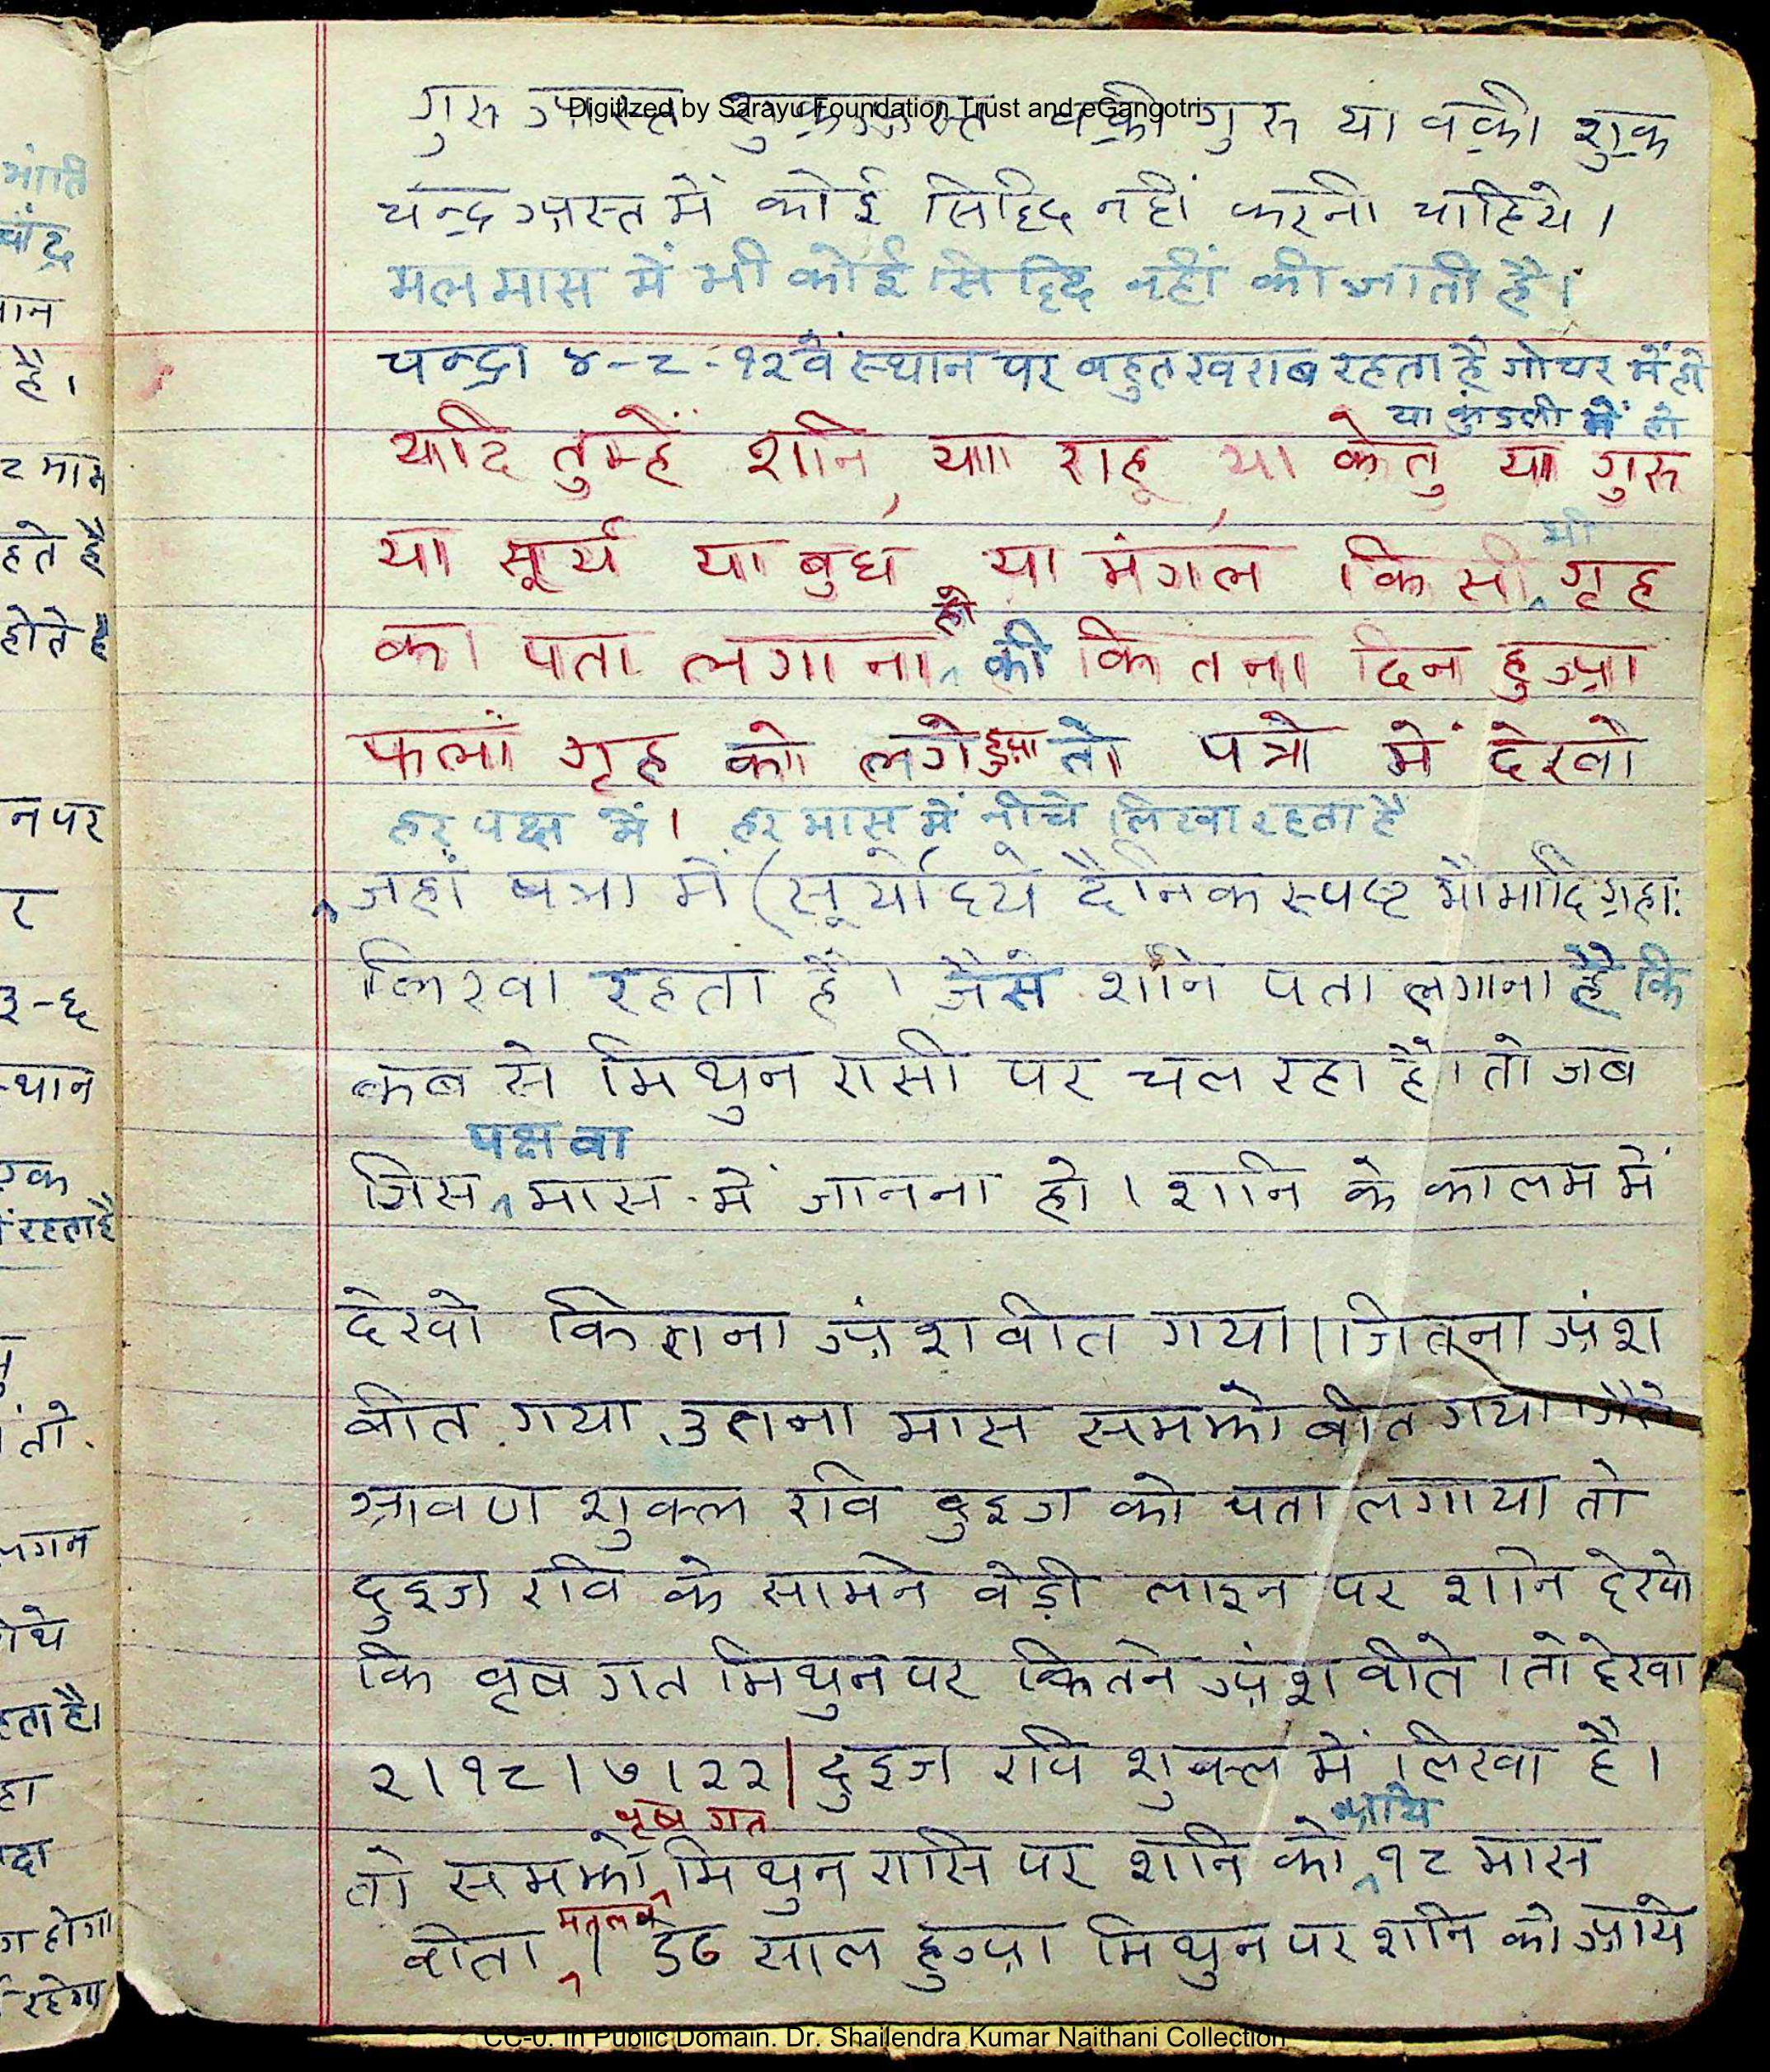 Digitized by Sarayu Foundation Trust and eGangotri
गुरु अस्त शुक्र अस्त वक्री गुरु या वक्री शुक्र
चन्द्र अस्त में कोई सिद्धि नहीं करनी चाहिये।
मलमास में भी कोई सिद्धि नहीं की जाती है।
चन्द्रा ४-८-१२वें स्थान पर बहुत खराब रहता है गोचर में हो
या कुंडली में हो
यदि तुम्हें शनि, या राहू, या केतु या गुरु
या सूर्य या बुध या मंगल किसी भी गृह
का पता लगाना हो की कितना दिन हुआ
फलां गृह को लगे हुआ तो पत्रा में देखो
हर पक्ष में। हर मास में नीचे लिखा रहता है
जहां पत्रा में (सूर्योदये दैनिक स्पष्ट भौमादि ग्रहाः
लिखा रहता है। जैसे शनि पता लगाना है कि
कब से मिथुन रासी पर चल रहा है। तो जब
जिस पक्ष वा मास में जानना हो। शनि के कालम में
देखो कितना अंश वीत गया। जितना अंश
बीत गया उतना मास समझो बीत गया। जैसे
श्रावण शुक्ल रवि दुइज को पता लगाया तो
दुइज रवि के सामने वेड़ी लाइन पर शनि देखो
कि वृष गत मिथुन पर कितने अंश वीते। तो देखा
२।१८।७।२२। दुइज रवि शुक्ल में लिखा है।
तो समझो वृष गत मिथुन रासि पर शनि को १८ मास
वीता मतलब। साल हुआ मिथुन पर शनि को आये
भांति
चांद्र
है।
हते है
होते है
न पर
र
३-६
स्थान
एक
रहता है
तो
लगन
हता है।
होगा
रहेगा
CC-0. In Public Domain. Dr. Shailendra Kumar Naithani Collection